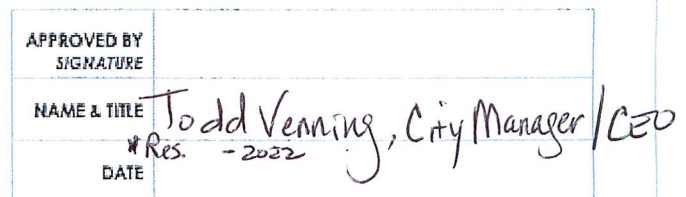 APPROVED BY
SIGNATURE
NAME & TITLE Todd Venning, City Manager/CEO
*Res. - 2022
DATE